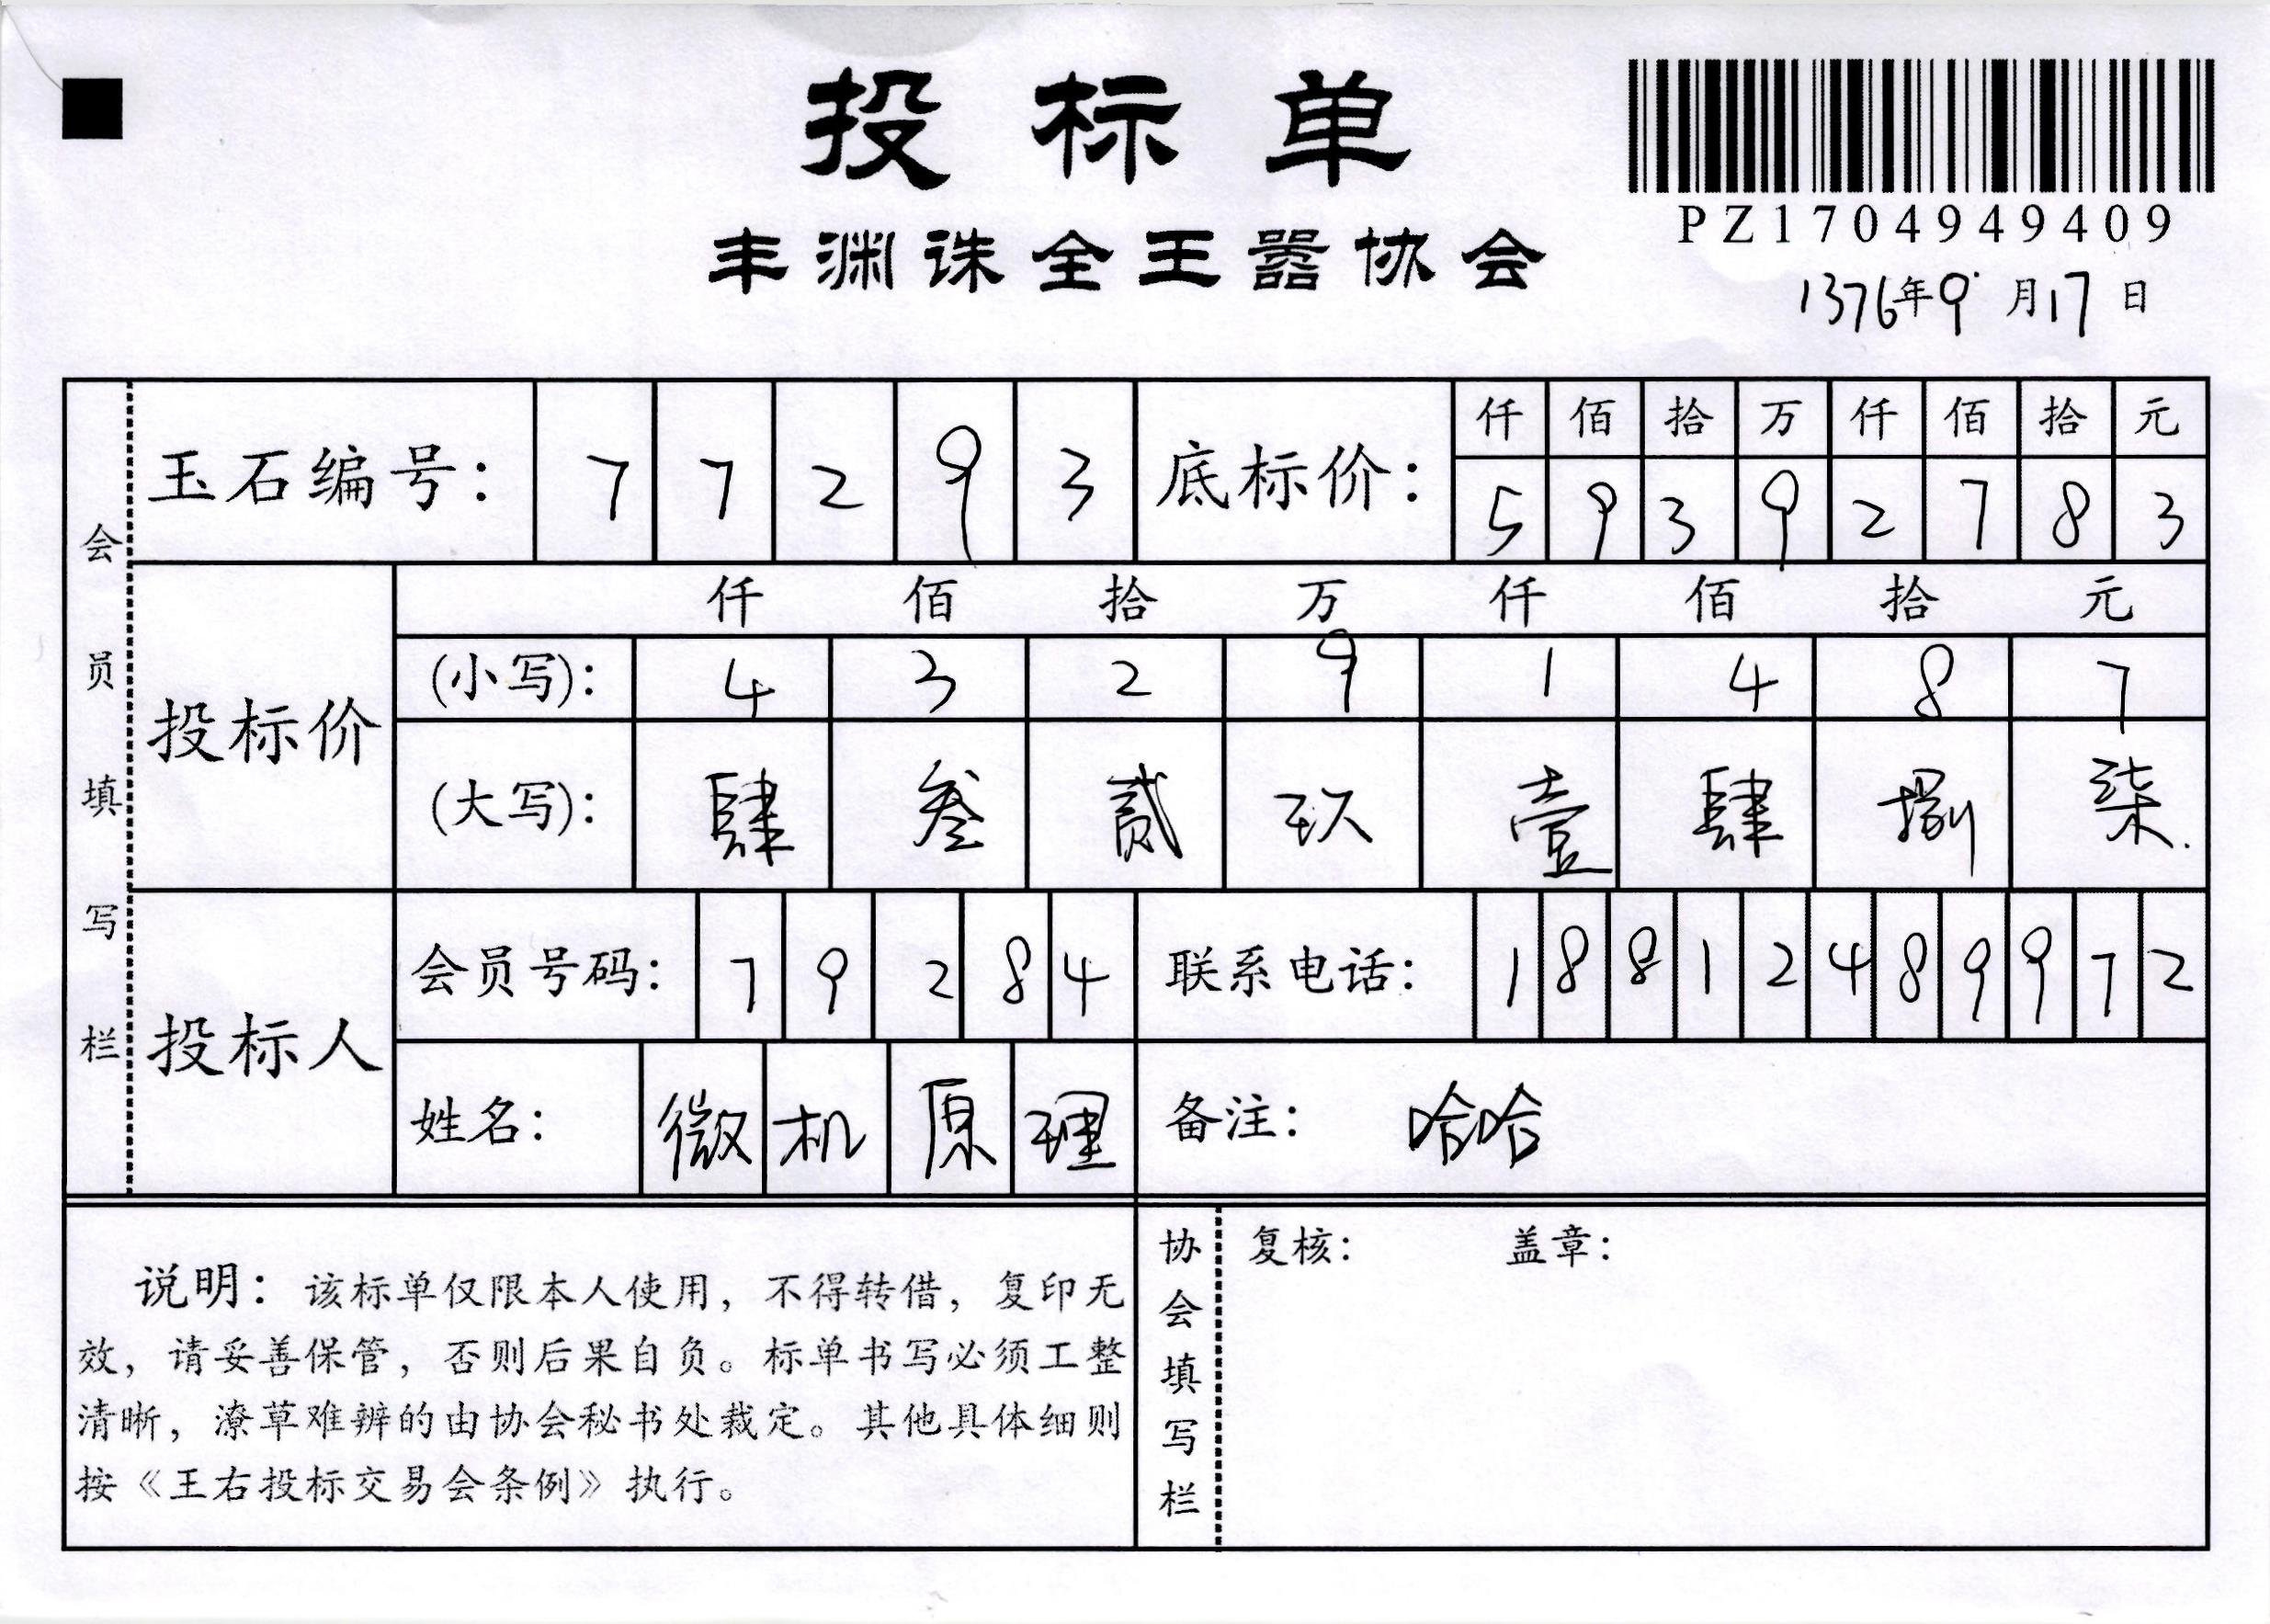 投标单
丰渊诛全王嚣协会
PZ1704949409
1376年9月17日
会员填写栏
玉石编号： 7 7 2 9 3
底标价： 仟 佰 拾 万 仟 佰 拾 元
5 9 3 9 2 7 8 3
投标价
仟 佰 拾 万 仟 佰 拾 元
(小写)： 4 3 2 9 1 4 8 7
(大写)： 肆 叁 贰 玖 壹 肆 捌 柒
投标人
会员号码： 7 9 2 8 4
联系电话： 1 8 8 1 2 4 8 9 9 7 2
姓名： 微 机 原 理
备注： 哈哈
说明：该标单仅限本人使用，不得转借，复印无
效，请妥善保管，否则后果自负。标单书写必须工整
清晰，潦草难辨的由协会秘书处裁定。其他具体细则
按《王右投标交易会条例》执行。
协会填写栏
复核： 盖章：